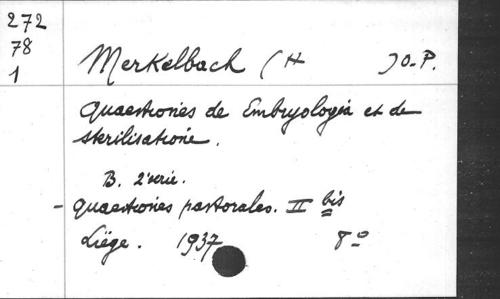 272
78
1
Merkelbach (H ) O.P.
Quaestiones de Embryologia et de
sterilisatione.
B. 2e serie.
- Quaestiones pastorales. II bis
Liége. 1937 8°